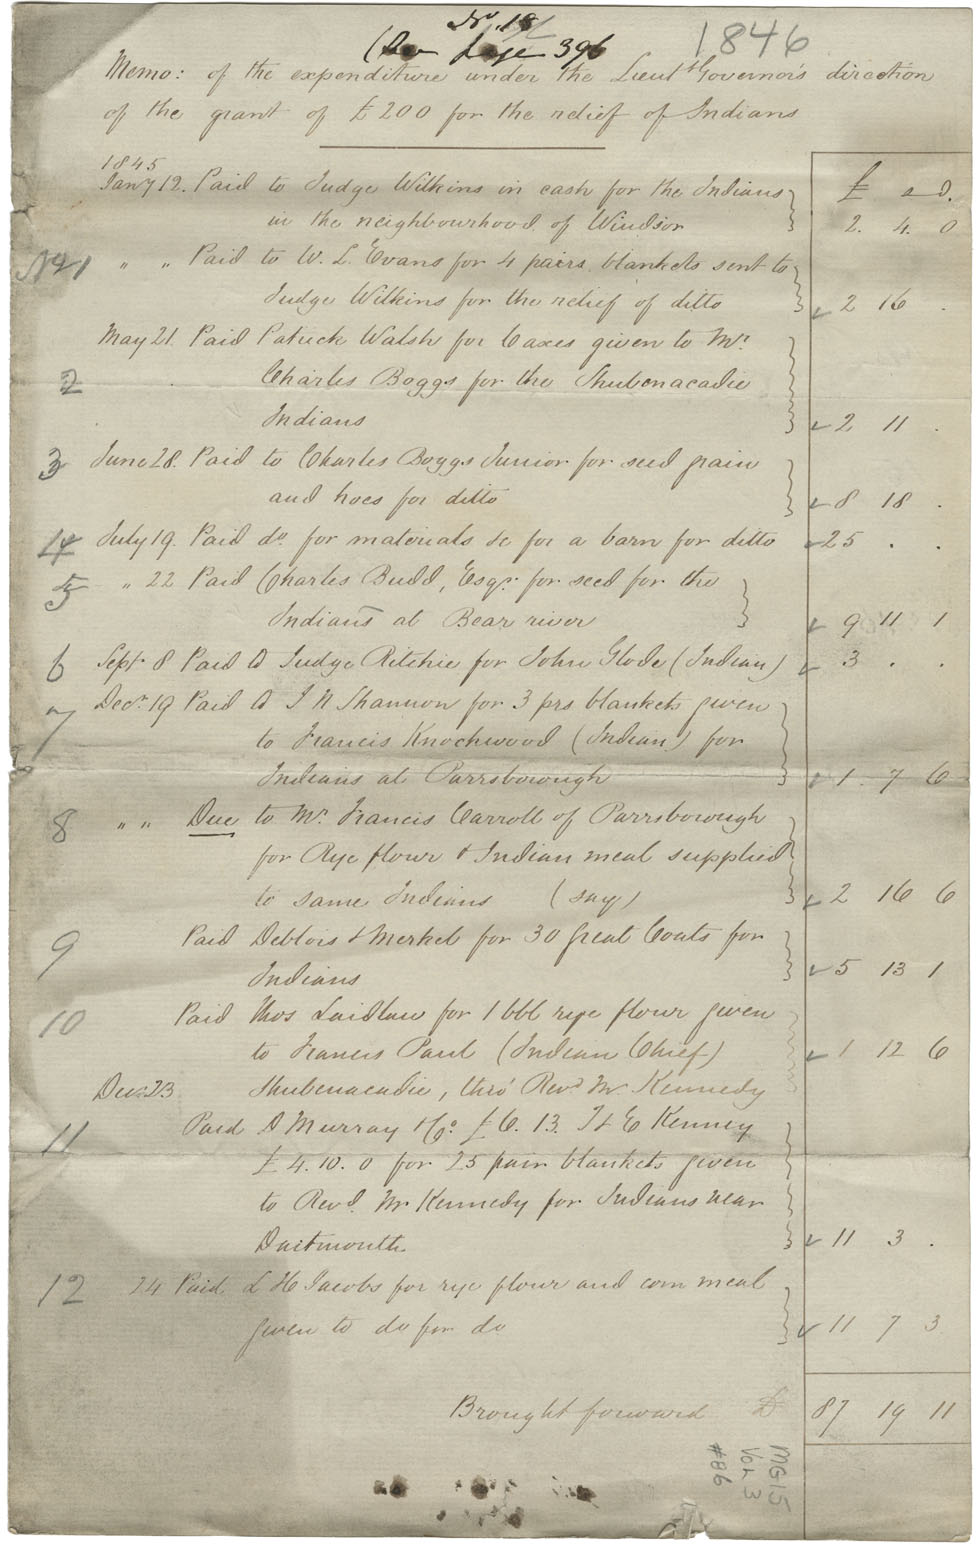 No. 18
(See page 396
1846
Memo: of the expenditure under the Lieut Governor's direction
of the grant of £200 for the relief of Indians
1845
£ s D.
Jany 12. Paid to Judge Wilkins in cash for the Indians
in the neighbourhood of Windsor 2. 4. 0
No 1 " " Paid to W. L. Evans for 4 pairs blankets sent to
Judge Wilkins for the relief of ditto 2 16 .
May 21. Paid Patrick Walsh for 6 axes given to Mr.
2 Charles Boggs for the Shubenacadie
Indians 2 11 .
3 June 28. Paid to Charles Boggs Junior for seed grain
and hoes for ditto 8 18 .
4 July 19. Paid do. for materials &c for a barn for ditto 25 . .
5 " 22 Paid Charles Budd, Esqr. for seed for the
Indians at Bear river 9 11 1
6 Sept 8 Paid Judge Ritchie for John Glode (Indian) 3 . .
7 Decr. 19 Paid J N Shannon for 3 prs blankets given
to Francis Knockwood (Indian) for
Indians at Parrsborough 1 7 6
8 " " Due to Mr. Francis Carroll of Parrsborough
for Rye flour & Indian meal supplied
to same Indians (say) 2 16 6
9 Paid Deblois & Merkel for 30 Great Coats for
Indians 5 13 1
10 Paid Thos Laidlaw for 1 bbl rye flour given
to Francis Paul (Indian Chief) 1 12 6
Dec. 23 Shubenacadie, thro' Revd Mr. Kennedy
11 Paid D Murray & Co. £6. 13. T & E Kenney
£4. 10. 0 for 25 pair blankets given
to Revd. Mr Kennedy for Indians near
Dartmouth 11 3 .
12 24 Paid L H Jacobs for rye flour and corn meal
given to do for do 11 7 3
Brought forward £ 87 19 11
MG15
Vol 3
#86